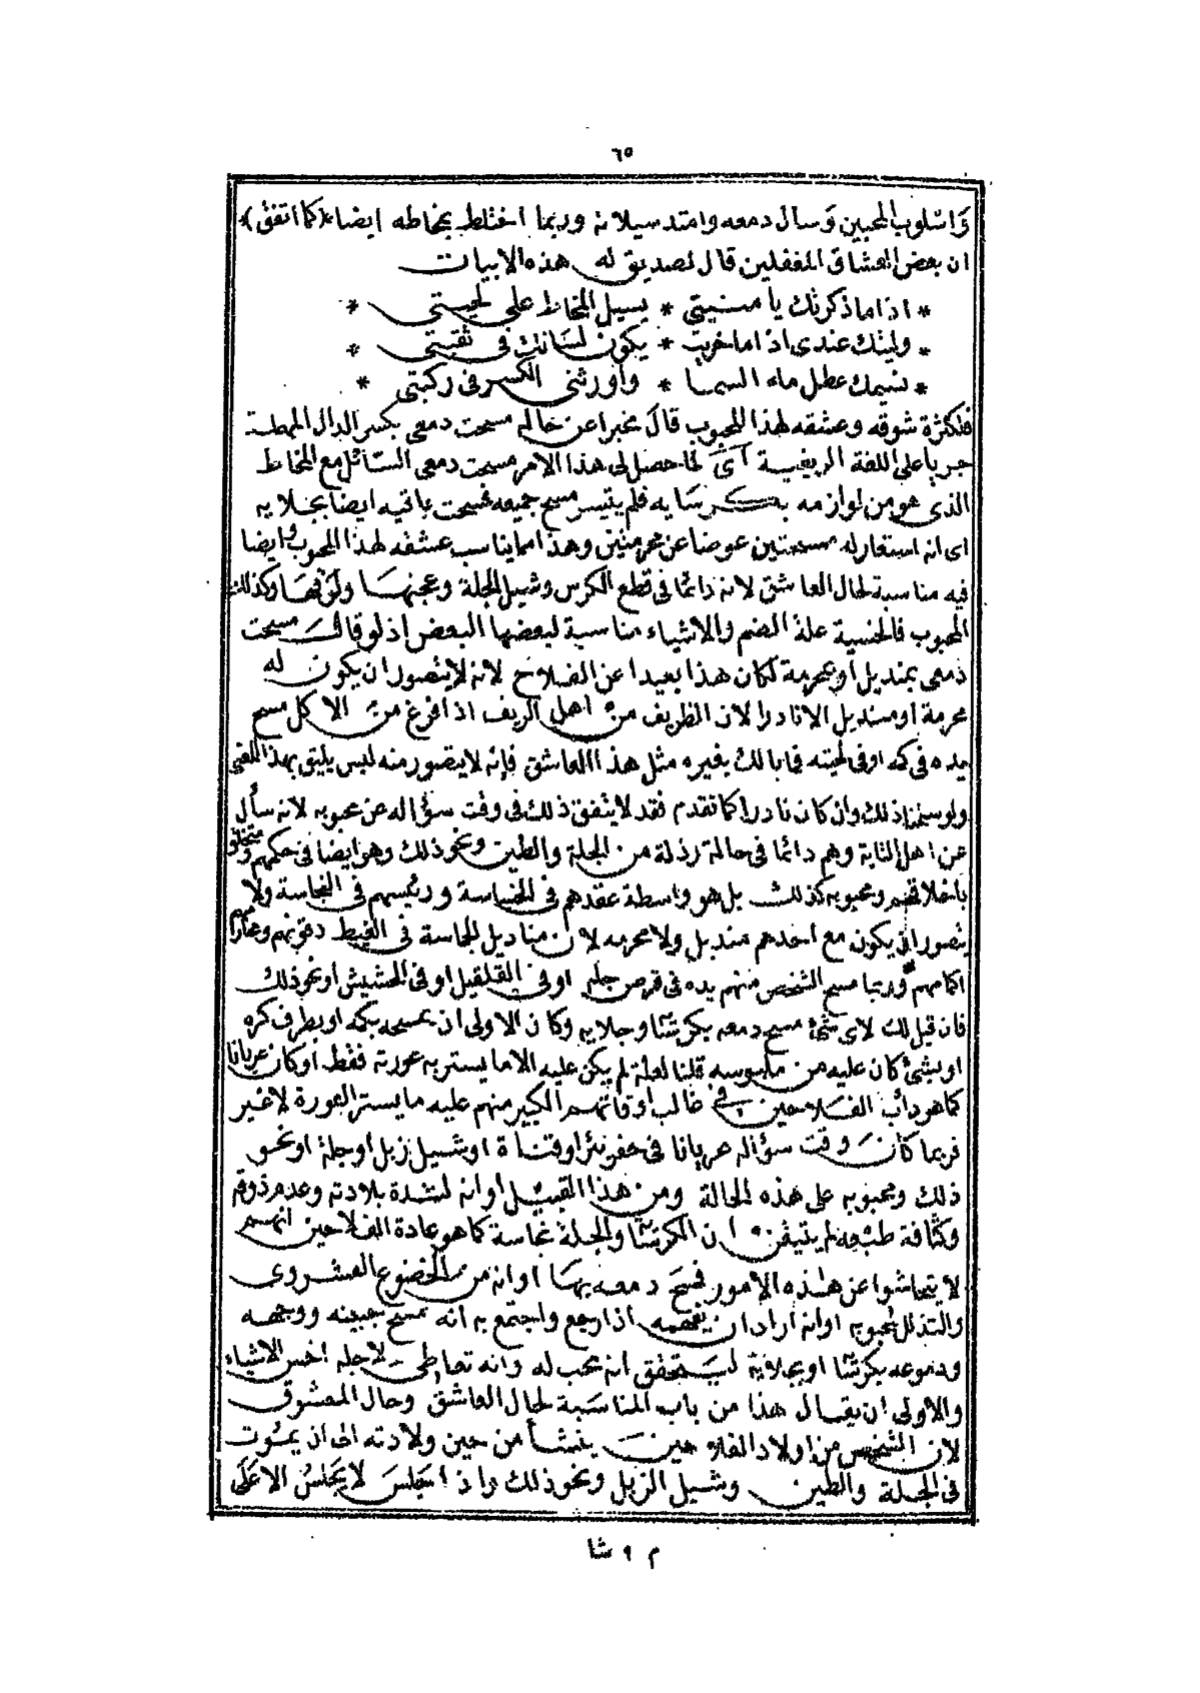 ٦٥
واسلوب المحبين وسال دمعه وامتد سيلانه وربما اختلط بمخاطه ايضا *(كما اتفق)*
ان بعض العشاق المغفلين قال لصديق له هذه الابيات
* اذا ما ذكرتك يا منيتي * يسيل المخاط على لحيتي *
* وليتك عندى اذا ما خريت * يكون لسانك في ثقبتي *
* نسيمك عطل ماء السما * واورثنى الكسر فى ركبتي *
فلكثرة شوقه وعشقه لهذا المحبوب قال مخبرا عن حاله مسحت دمعى بكسر الدال المهملة
جريا على اللغة الريفية اى لما حصل لى هذا الامر مسحت دمعى السائل مع المخاط
الذى هو من لوازمه بكرشايه فلم يتيسر مسح جميعه فمسحت باقيه ايضا بجلايه
اى انه استعار له مسحتين عوضا عن محرمتين وهذا مما يناسب عشقه لهذا المحبوب وايضا
فيه مناسبة لحال العاشق لانه دائما فى قطع الكرس وشيل الجلة وعجنها ولزقها وكذلك
المحبوب فالجنسية علة الضم والاشياء مناسبة لبعضها البعض اذ لو قال مسحت
دمعى بمنديل او محرمة لكان هذا بعيدا عن الفلاح لانه لا يتصور ان يكون له
محرمة او منديل الا نادرا لان الظريف من اهل الريف اذا فرغ من الاكل مسح
يده فى كمه او فى لحيته فما بالك بغيره مثل هذا العاشق فإنه لا يتصور منه لبس يليق بهذا المعنى
ولو سلمنا ذلك وان كان نادرا كما تقدم فقد لا يتفق ذلك فى وقت سؤاله عن محبوبه لانه سأل
عن اهل التاية وهم دائما فى حالة رذلة من الجلة والطين ونحو ذلك وهو ايضا فى حكمهم ومتخلق
باخلاقهم ومحبوبه كذلك بل هو واسطة عقدهم فى الخساسة ورئيسهم فى النجاسة ولا
يتصور ان يكون مع احدهم منديل ولا محرمه لان مناديل الجاسة فى الغيط دقونهم ومحارمهم
اكمامهم وربما مسح الشخص منهم يده فى قرص جله او فى القلقيل او فى الحشيش او نحو ذلك
فان قيل لك لاى شئ مسح دمعه بكرشا وجلايه وكان الاولى ان يمسحه بكمه او بطرف كره
او بشئ كان عليه من ملبوسه قلنا لعله لم يكن عليه الا ما يستر به عورته فقط او كان عريانا
كما هو دأب الفلاحين فى غالب اوقاتهم الكبير منهم عليه ما يستر العورة لا غير
فربما كان وقت سؤاله عريانا فى حفر بئر او قناة او شيل زبل او جلة او نحو
ذلك ومحبوبه على هذه الحالة ومن هذا القبيل او انه لشدة بلادته وعدم ذوقه
وكثافة طبعه لم يتيقن ان الكرشا والجلة نجاسة كما هو عادة الفلاحين انهم
لا يتحاشوا عن هذه الامور فمسح دمعه بها او انه من الخضوع العشروى
والتذلل لمحبوبه او انه اراد ان يفهمه اذا رجع واجتمع به انه مسح جبينه ووجهه
ودموعه بكرشا او بجلاية ليتحقق انه محب له وانه تعاطى لاجله اخس الاشياء
والاولى ان يقال هذا من باب المناسبة لحال العاشق وحال المعشوق
لان الشخص من اولاد الفلاحين ينشأ من حين ولادته الى ان يموت
فى الجلة والطين وشيل الزبل ونحو ذلك واذا جلس لا يجلس الا على
م ٩ شا